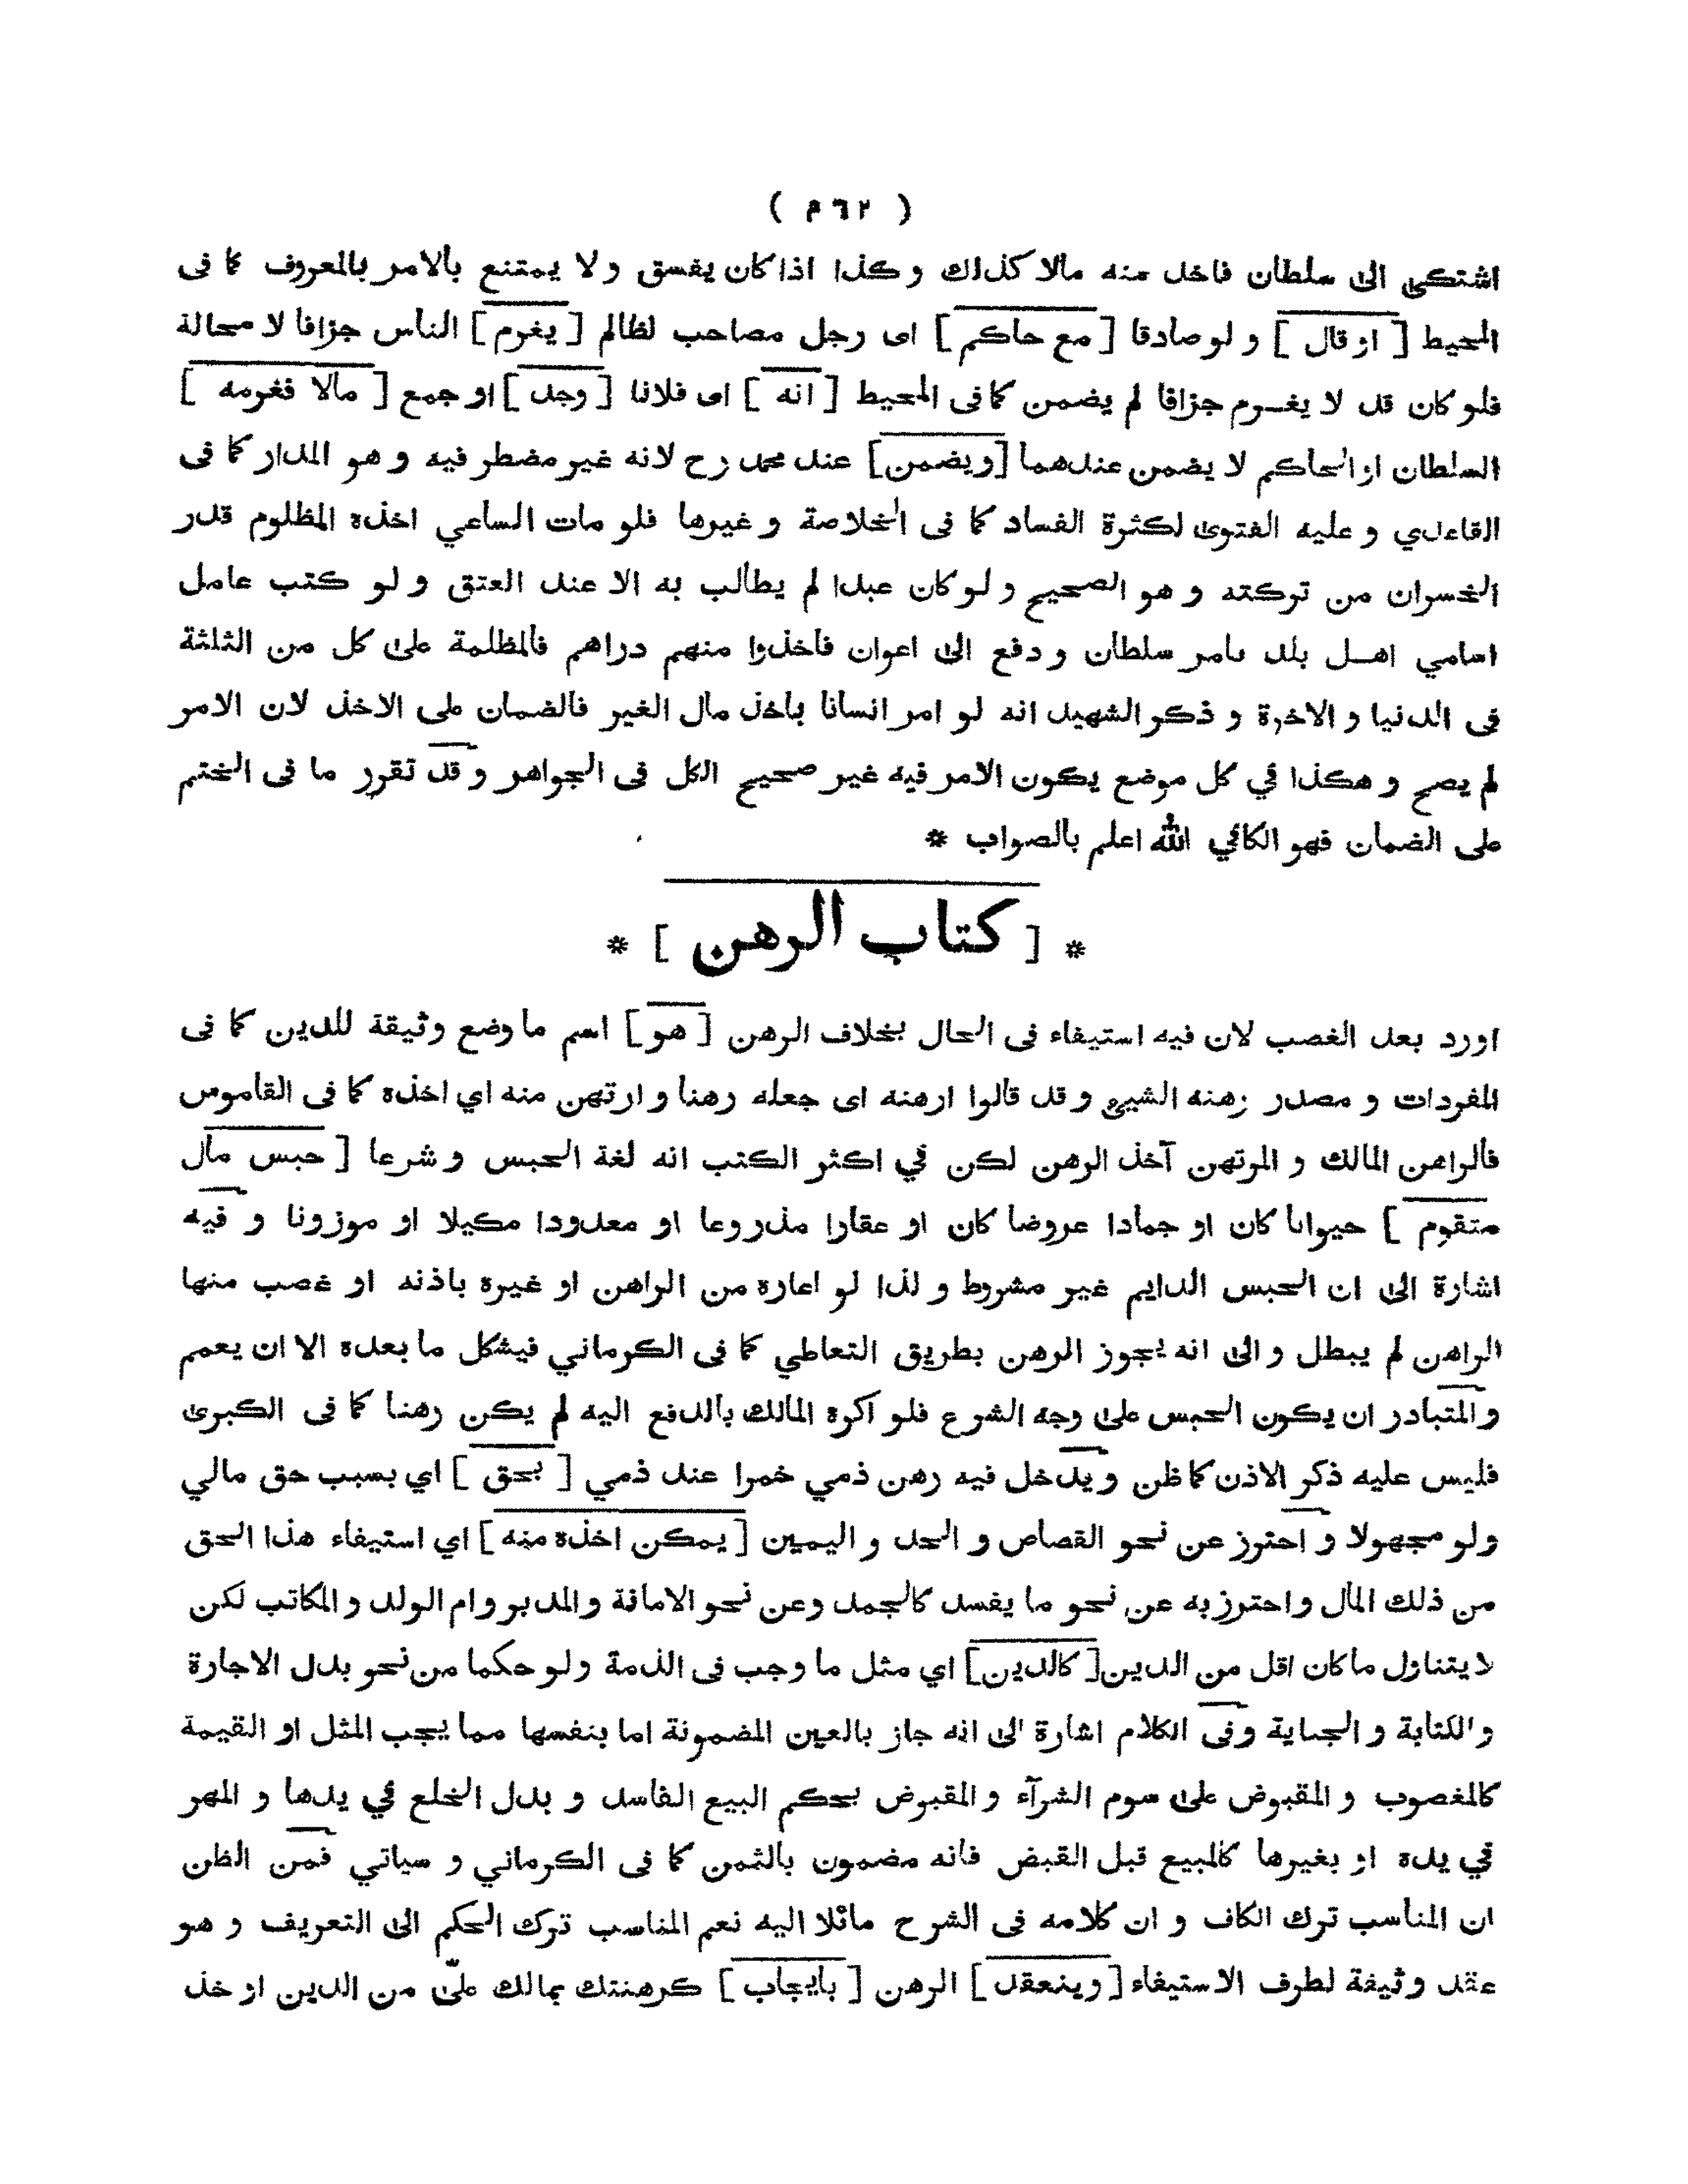 ( ٦٢م )
اشتكى الى سلطان فاخذ منه مالا كذلك و كذا اذا كان يفسق ولا يمتنع بالامر بالمعروف كما فى
المحيط [ او قال ] و لو صادقا [ مع حاكم ] اى رجل مصاحب لظالم [ يغرم ] الناس جزافا لا محالة
فلو كان قد لا يغرم جزافا لم يضمن كما فى المحيط [ انه ] اى فلانا [ وجد ] او جمع [ مالا فغرمه ]
السلطان او الحاكم لا يضمن عندهما [ ويضمن ] عند محمد رح لانه غير مضطر فيه و هو المدار كما فى
القاعدي و عليه الفتوى لكثرة الفساد كما فى الخلاصة و غيرها فلو مات الساعي اخذه المظلوم قدر
الخسران من تركته و هو الصحيح و لو كان عبدا لم يطالب به الا عند العتق و لو كتب عامل
اسامي اهل بلد بامر سلطان و دفع الى اعوان فاخذوا منهم دراهم فالمظلمة على كل من الثلثة
فى الدنيا و الاخرة و ذكر الشهيد انه لو امر انسانا باخذ مال الغير فالضمان على الاخذ لان الامر
لم يصح و هكذا في كل موضع يكون الامر فيه غير صحيح الكل فى الجواهر و قد تقرر ما فى الختم
على الضمان فهو الكافي الله اعلم بالصواب *
* [ كتاب الرهن ] *
اورد بعد الغصب لان فيه استيفاء فى الحال بخلاف الرهن [ هو ] اسم ما وضع وثيقة للدين كما فى
المفردات و مصدر رهنه الشيئ و قد قالوا ارهنه اى جعله رهنا و ارتهن منه اي اخذه كما فى القاموس
فالراهن المالك و المرتهن آخذ الرهن لكن في اكثر الكتب انه لغة الحبس و شرعا [ حبس مال
متقوم ] حيوانا كان او جمادا عروضا كان او عقارا مذروعا او معدودا مكيلا او موزونا و فيه
اشارة الى ان الحبس الدايم غير مشروط و لذا لو اعاره من الراهن او غيره باذنه او غصب منها
الراهن لم يبطل و الى انه يجوز الرهن بطريق التعاطي كما فى الكرماني فيشكل ما بعده الا ان يعمم
و المتبادر ان يكون الحبس على وجه الشرع فلو اكره المالك بالدفع اليه لم يكن رهنا كما فى الكبرى
فليس عليه ذكر الاذن كما ظن و يدخل فيه رهن ذمي خمرا عند ذمي [ بحق ] اي بسبب حق مالي
ولو مجهولا و احترز عن نحو القصاص و الحد و اليمين [ يمكن اخذه منه ] اي استيفاء هذا الحق
من ذلك المال و احترز به عن نحو ما يفسد كالجمد وعن نحو الامانة والمدبر وام الولد والمكاتب لكن
لا يتناول ما كان اقل من الدين [ كالدين ] اي مثل ما وجب فى الذمة ولو حكما من نحو بدل الاجارة
والكتابة و الجناية وفى الكلام اشارة الى انه جاز بالعين المضمونة اما بنفسها مما يجب المثل او القيمة
كالمغصوب و المقبوض على سوم الشرآء و المقبوض بحكم البيع الفاسد و بدل الخلع في يدها و المهر
في يده او بغيرها كالمبيع قبل القبض فانه مضمون بالثمن كما فى الكرماني و سياتي فمن الظن
ان المناسب ترك الكاف و ان كلامه فى الشرح مائلا اليه نعم المناسب ترك الحكم الى التعريف و هو
عقد وثيقة لطرف الاستيفاء [ وينعقد ] الرهن [ بايجاب ] كرهنتك بمالك علىّ من الدين او خذ